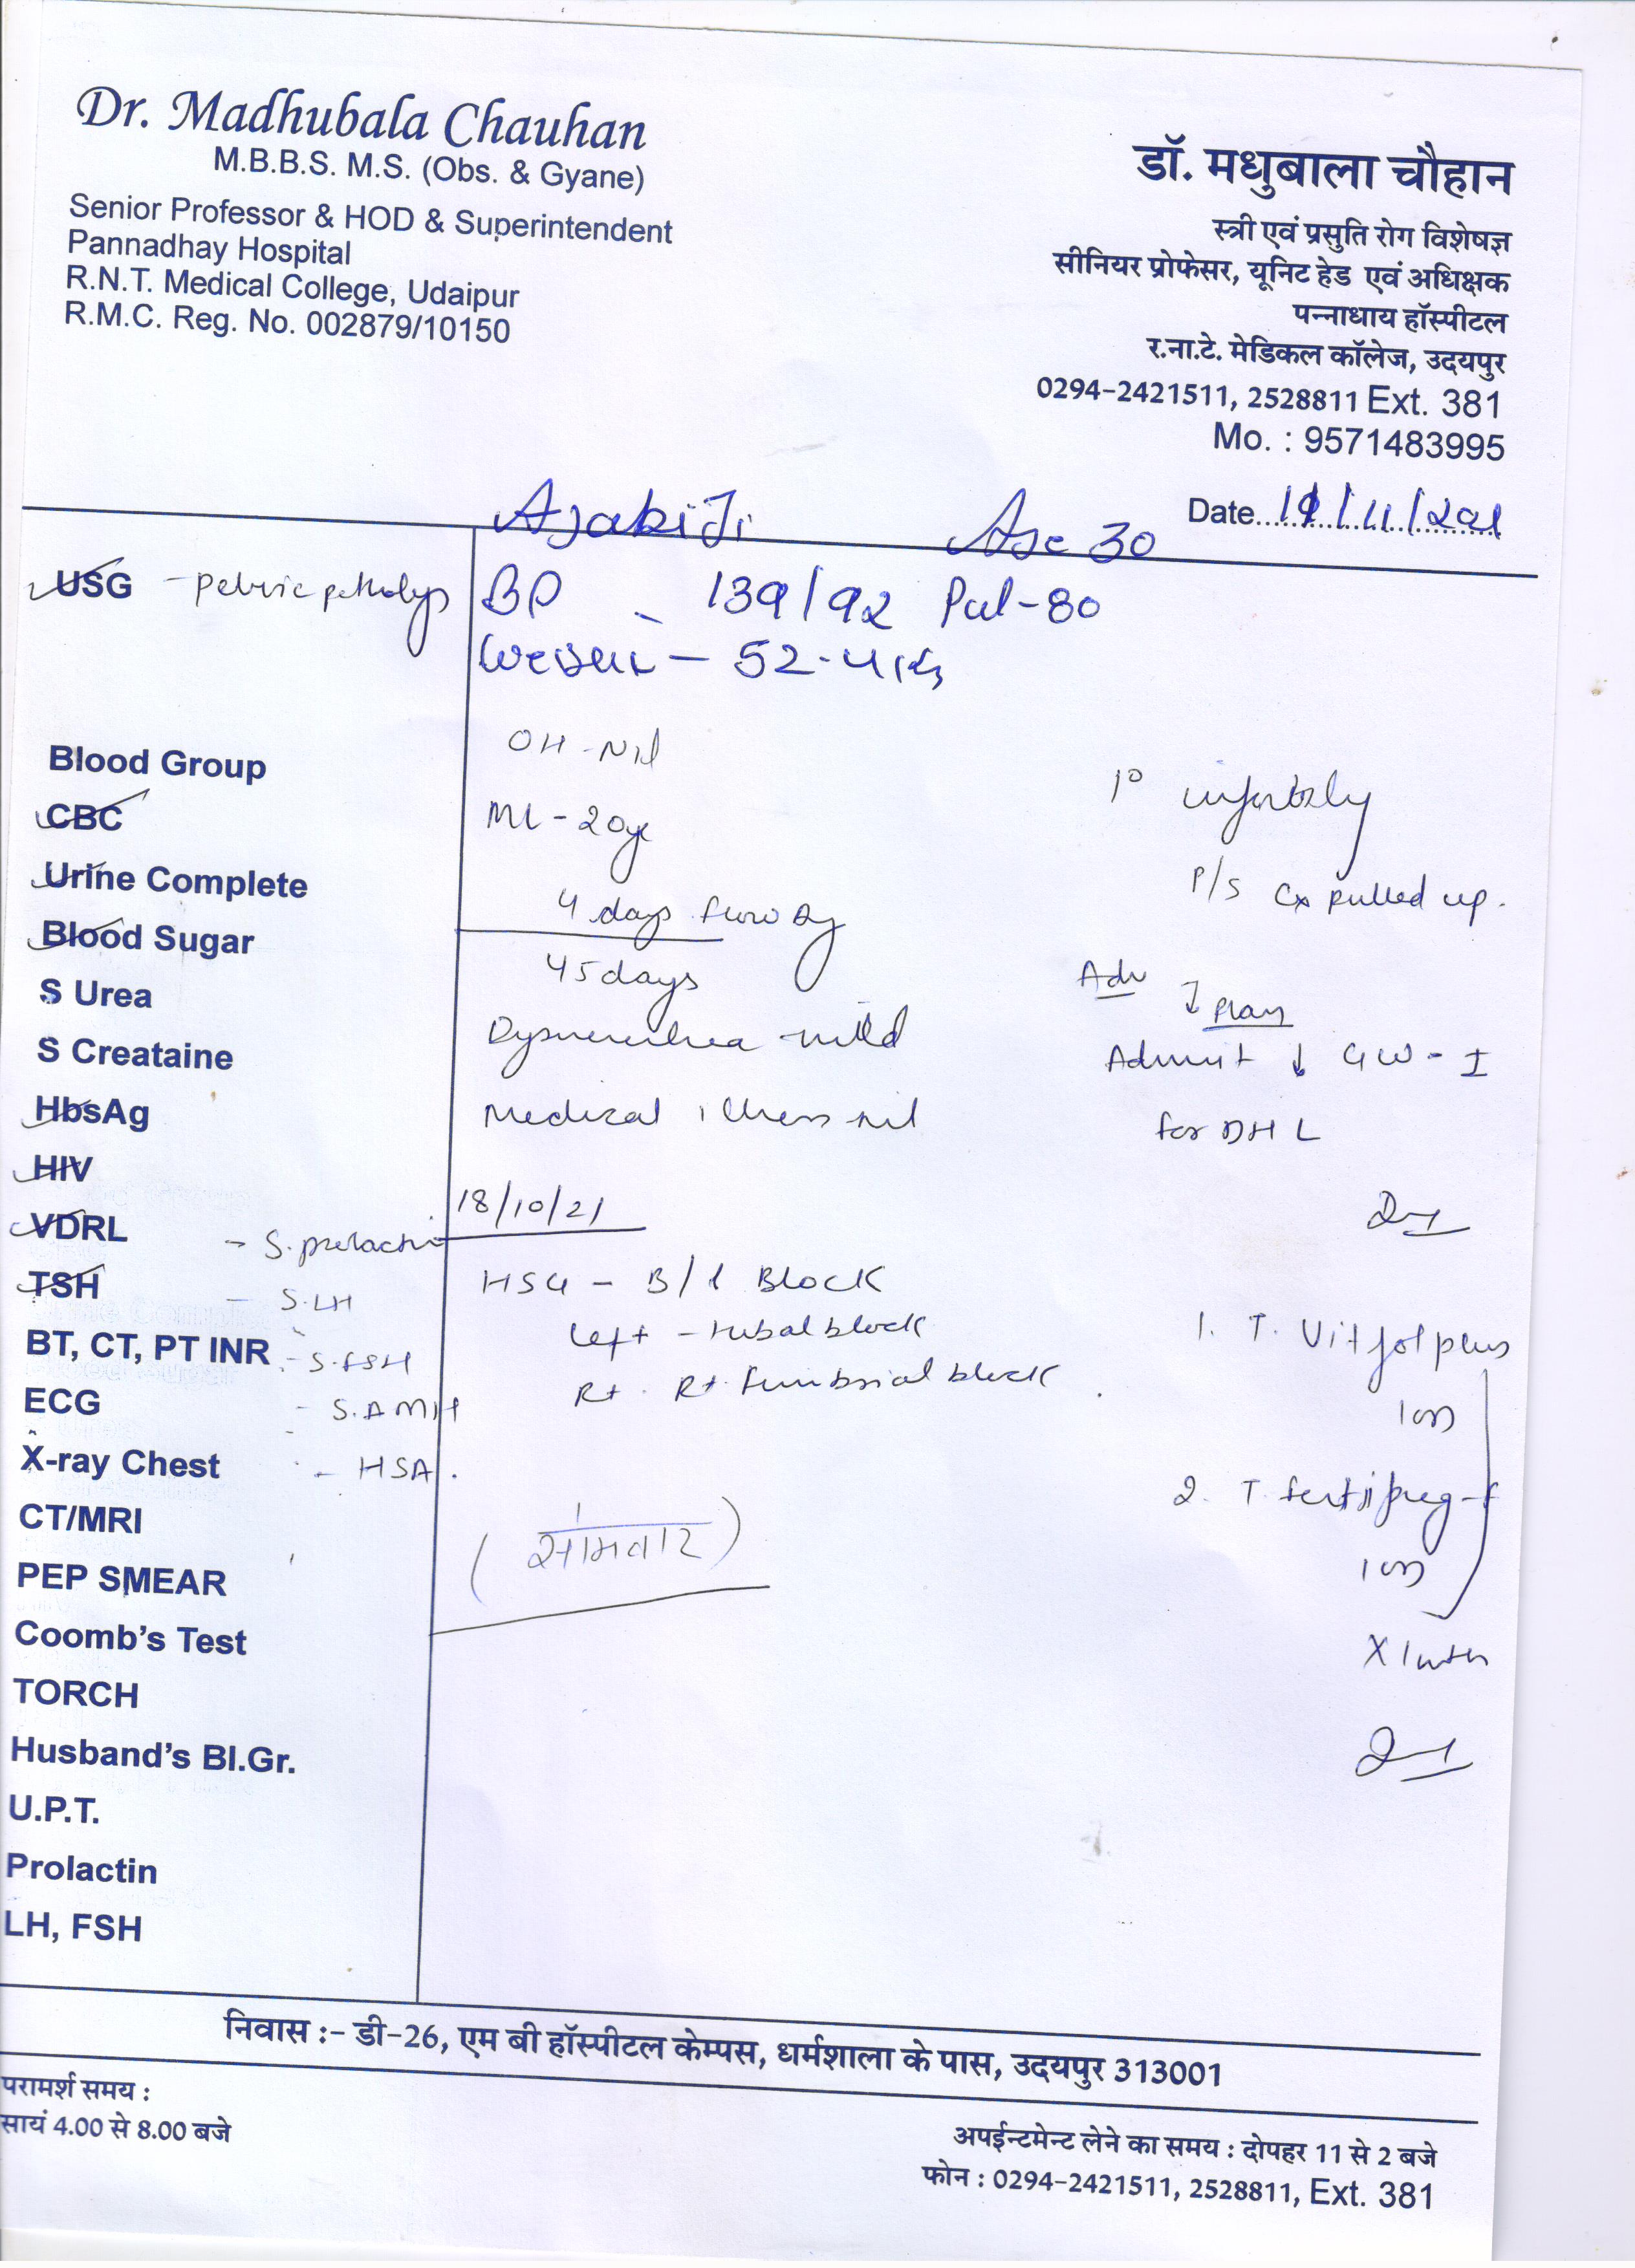 Dr. Madhubala Chauhan
M.B.B.S. M.S. (Obs. & Gyane)
Senior Professor & HOD & Superintendent
Pannadhay Hospital
R.N.T. Medical College, Udaipur
R.M.C. Reg. No. 002879/10150
डॉ. मधुबाला चौहान
स्त्री एवं प्रसुति रोग विशेषज्ञ
सीनियर प्रोफेसर, यूनिट हेड एवं अधिक्षक
पन्नाधाय हॉस्पीटल
र.ना.टे. मेडिकल कॉलेज, उदयपुर
0294-2421511, 2528811 Ext. 381
Mo. : 9571483995
Date
Age 30
USG - pelvic
Blood Group
CBC
Urine Complete
Blood Sugar
S Urea
S Creataine
HbsAg
HIV
VDRL - S.prolactin
TSH - S.LH
BT, CT, PT INR - S.FSH
ECG - S.AMH
X-ray Chest - HSA.
CT/MRI
PEP SMEAR
Coomb's Test
TORCH
Husband's Bl.Gr.
U.P.T.
Prolactin
LH, FSH
BP - 139/92 Pul-80
52.4
OH - Nil
ML - 20yr
4 days
45 days
Dysmenorrhea - mild
Medical illness - nil
18/10/21
HSG - B/L Block
Left - tubal block
Rt. Rt. fimbrial block
(सोमवार)
1° infertility
P/S Cx pulled up.
Adv
Plan
Admit ↓ GW - I
for DHL
1. T. Vitfol plus
1 OD
2. T. fertipreg-f
1 OD
X 1 mth
निवास :- डी-26, एम बी हॉस्पीटल केम्पस, धर्मशाला के पास, उदयपुर 313001
परामर्श समय :
सायं 4.00 से 8.00 बजे
अपईन्टमेन्ट लेने का समय : दोपहर 11 से 2 बजे
फोन : 0294-2421511, 2528811, Ext. 381